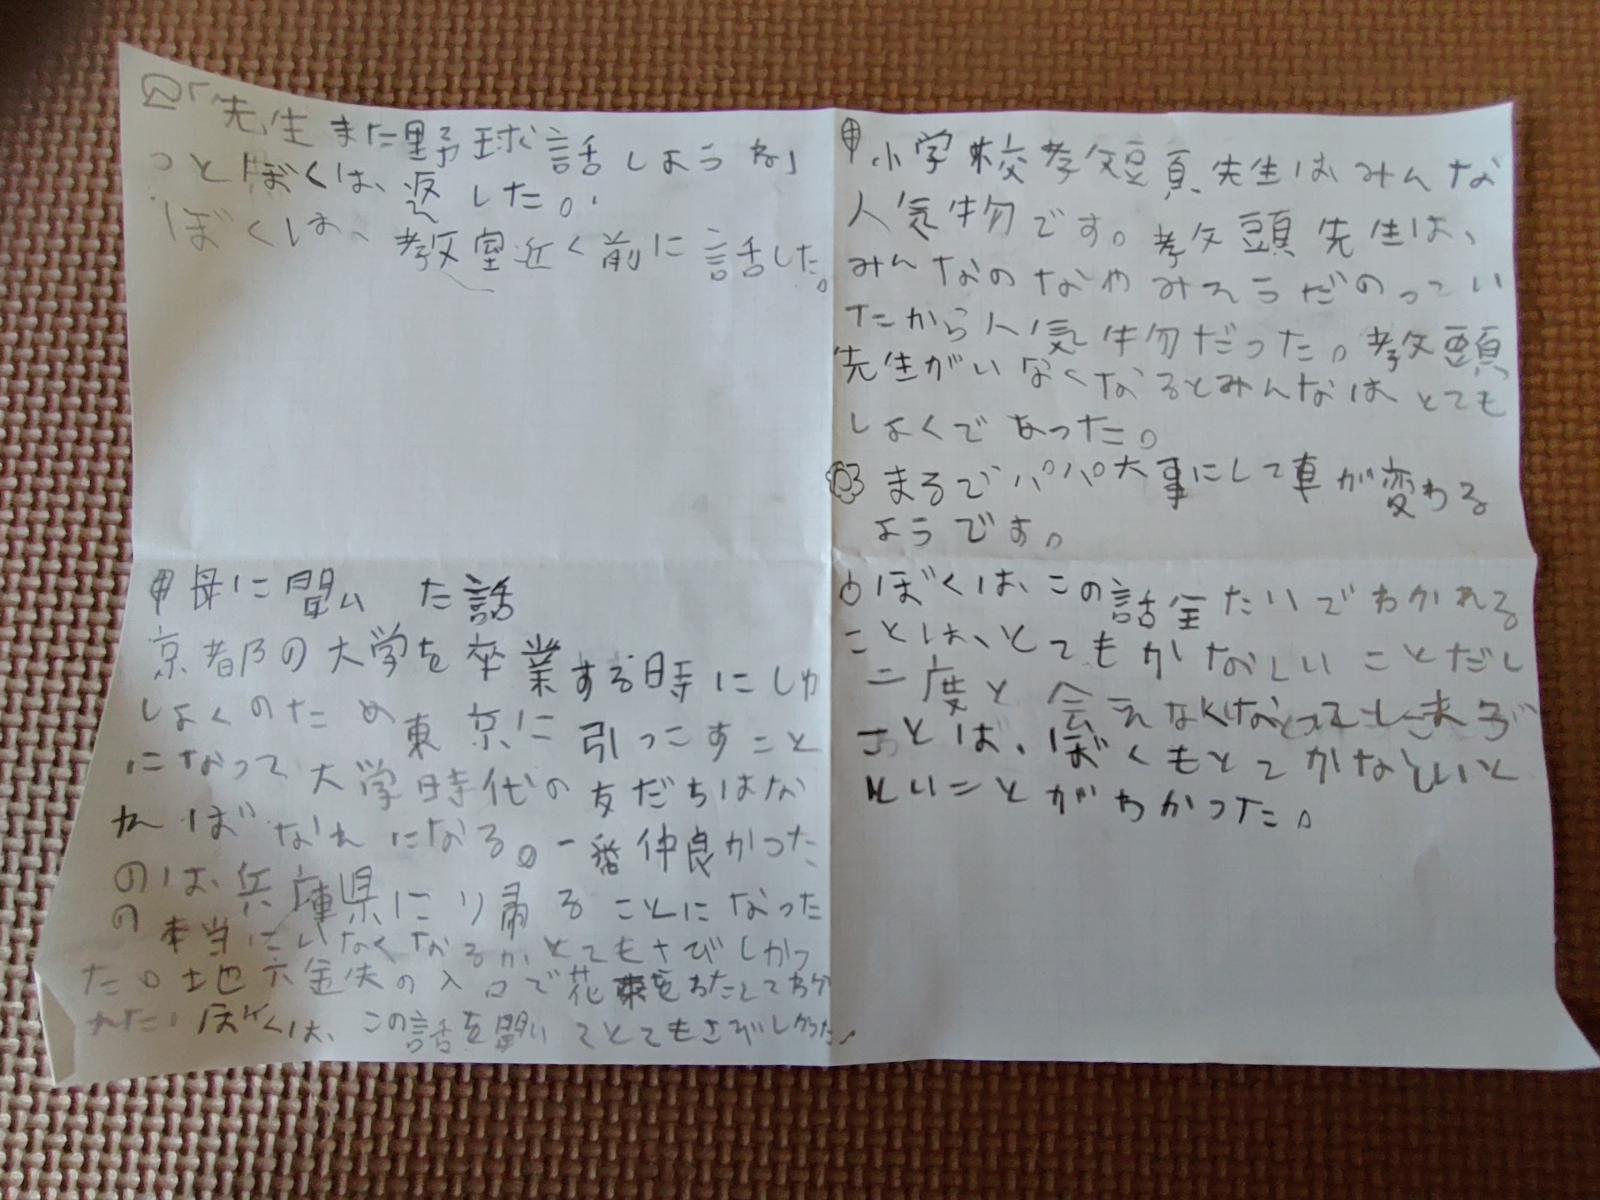 「先生また野球話しようね」
っとぼくは、返した。
ぼくは、教室近く前に話した。
申小学校教頭先生はみんな
人気物です。教頭先生は、
みんなのなやみそうだのってい
たから人気物だった。教頭
先生がいなくなるとみんなはとても
しょくであった。
まるでパパ大事にして車が変わる
ようです。
申母に聞いた話
京都の大学を卒業する時にしゅ
しょくのため東京に引っこすこと
になって大学時代の友だちはな
ればなれになる。一番仲良かった
のは、兵庫県にり帰ることになった
の本当にいなくなるがとてもさびしかっ
た。地下鉄の入口で花束をわたしてわか
れた。ぼくは、この話を聞いてとてもさびしかった。
心ぼくは、この話全たいでわかれる
ことは、とてもかなしいことだし
二度と会えなくなってしまう
ことは、ぼくもとてかなしいと
いことがわかった。